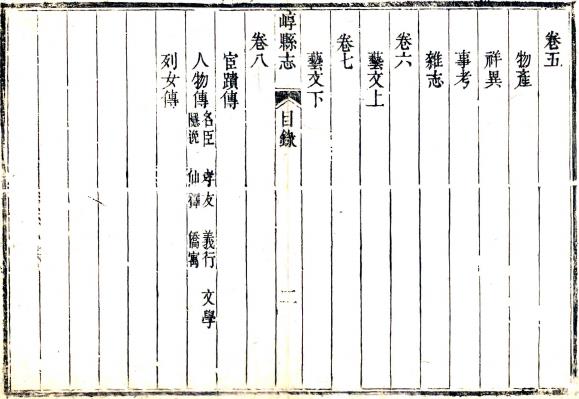 卷五
物產
祥異
事考
雜志
卷六
藝文上
卷七
藝文下
崞縣志 目錄 二
卷八
宦蹟傳
人物傳 名臣 孝友 義行 文學
隱逸 仙釋 僑寓
列女傳